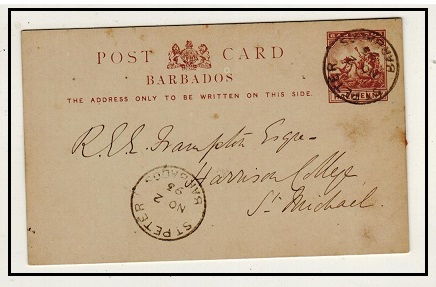 POST CARD
BARBADOS
THE ADDRESS ONLY TO BE WRITTEN ON THIS SIDE.
HALFPENNY
ST PETER
BARBADOS
R.E.E. Frampton Esqre-
Harrison College
St Michael.
ST PETER
NO 2
93
BARBADOS